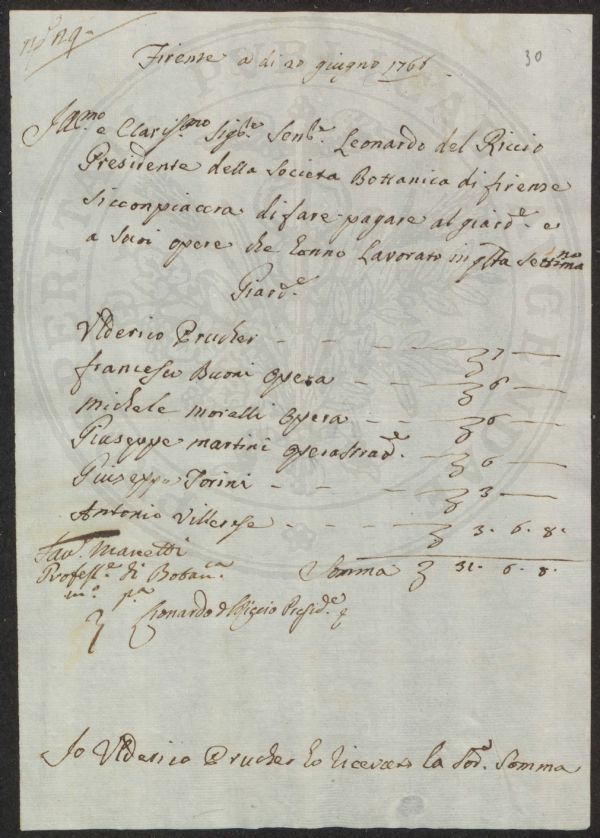 30
Firenze a di 20 giugno 1761
Ill.mo e Clariss.mo Sig.re Sen.re Leonardo del Riccio
Presidente della Societa Bottanica di firenze
Siccompiaccera di fare pagare al giard.e e
a suoi opere che hanno Lavorato in q.sta Settimna
Giard.e
Ulderico Prucher - - - 7 —
francesco Buoni opera - - 6 —
Michele morelli opera - - 6 —
Giuseppe martini opera strad.e - 6 —
Giuseppe Torini - - - 3 —
Antonio Villerese - - - 3. 6. 8.
Sav. Manetti
Profess.e di Botan.ca
Somma 31. 6. 8.
m.o p.a
Lionardo d Riccio Presid.e
Io Ulderico Prucher ho ricevuto la Sod.a Somma